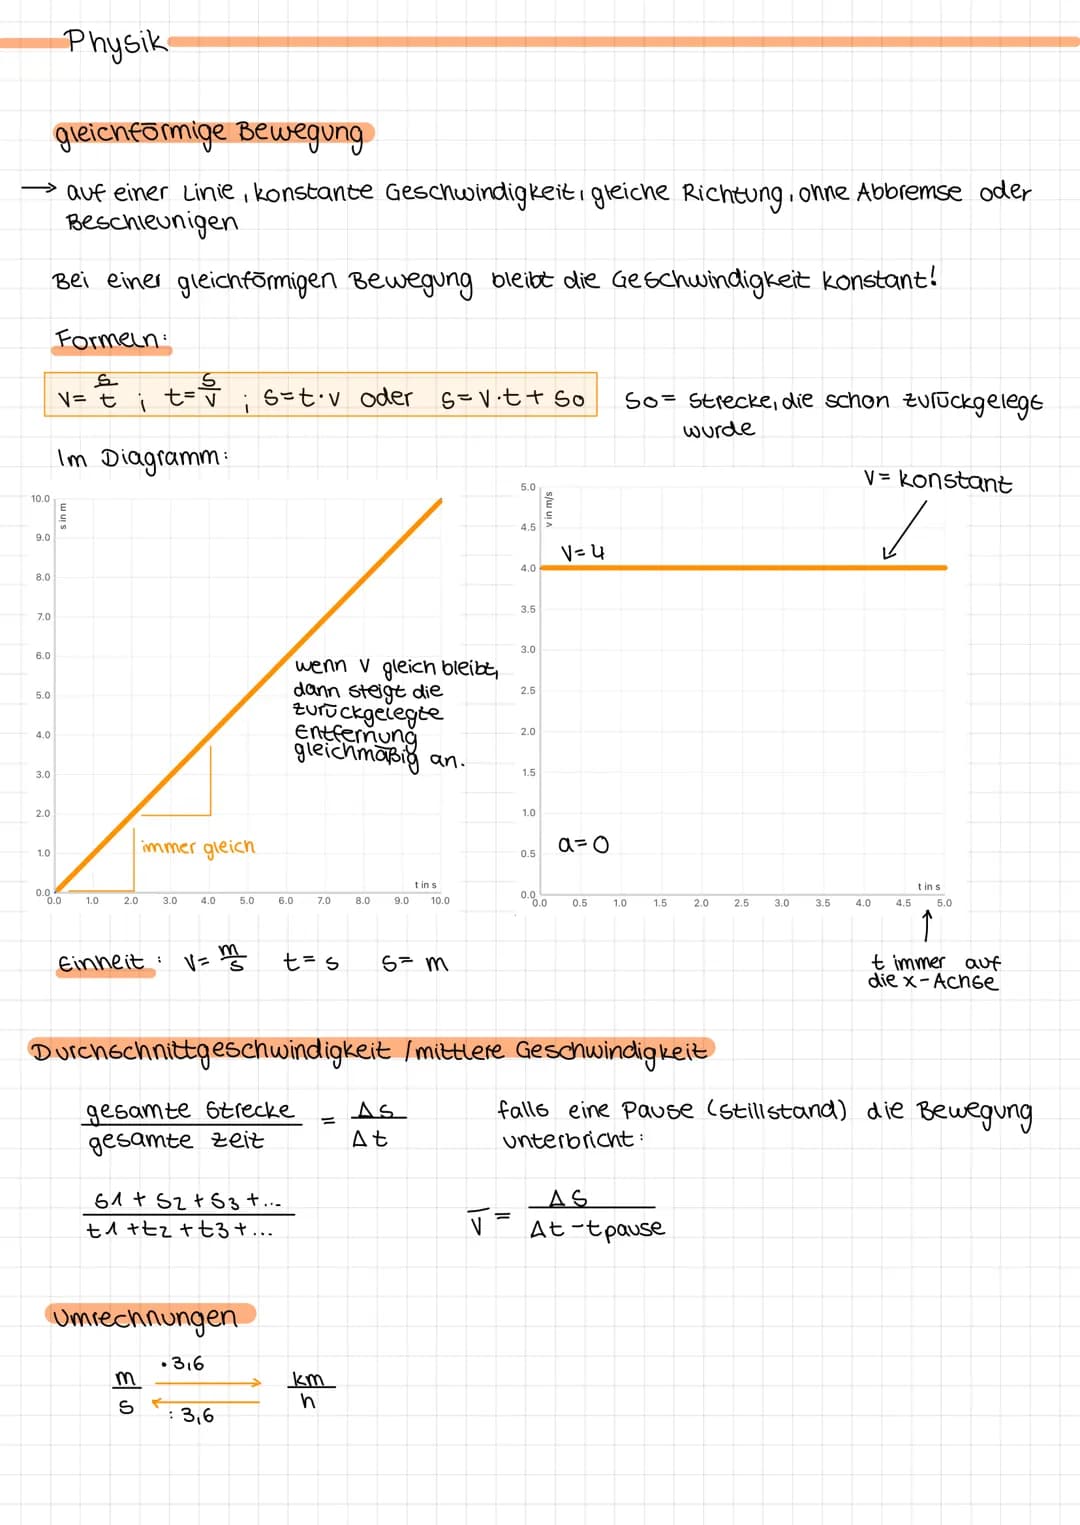 Physik
gleichförmige Bewegung
→ auf einer Linie, konstante Geschwindigkeit, gleiche Richtung, ohne Abbremse oder
Beschleunigen
Bei einer gleichförmigen Bewegung bleibt die Geschwindigkeit konstant!
Formeln:
v= s/t ; t= s/v ; s=t·v oder s=v·t+so
so= Strecke, die schon zurückgelegt
wurde
Im Diagramm:
10.0
9.0
8.0
7.0
6.0
5.0
4.0
3.0
2.0
1.0
0.0
s in m
wenn v gleich bleibt,
dann steigt die
zurückgelegte
Entfernung
gleichmäßig an.
immer gleich
t in s
0.0 1.0 2.0 3.0 4.0 5.0 6.0 7.0 8.0 9.0 10.0
v= konstant
5.0
4.5
4.0
3.5
3.0
2.5
2.0
1.5
1.0
0.5
0.0
v in m/s
v=4
a=0
t in s
0.0 0.5 1.0 1.5 2.0 2.5 3.0 3.5 4.0 4.5 5.0
t immer auf
die x-Achse
Einheit: v= m/s t= s s= m
Durchschnittgeschwindigkeit /mittlere Geschwindigkeit
gesamte Strecke / gesamte Zeit = Δs / Δt
falls eine Pause (Stillstand) die Bewegung
unterbricht:
s1+s2+s3+...
t1+t2+t3+...
v̅ = Δs / Δt-tpause
Umrechnungen
·3,6
m/s → km/h
←
:3,6